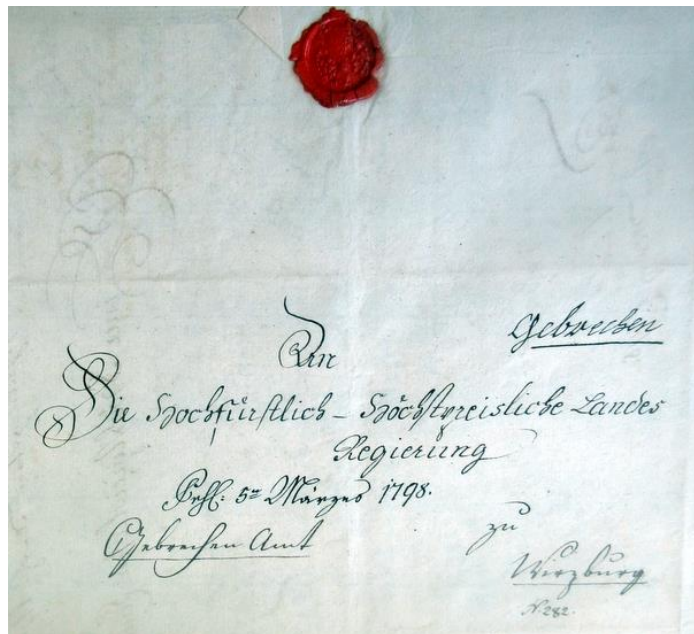 Gebrechen
An
Die Hochfürstlich – Höchstpreisliche Landes
Regierung
5ten Märzes 1798.
Gebrechen Amt
zu
Wirzburg
N. 282.